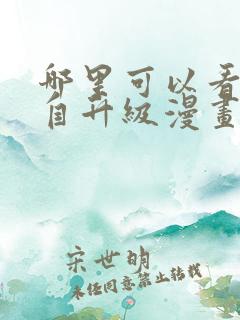 哪里可以看
自升级漫畫
宋世明
未经同意禁止转载